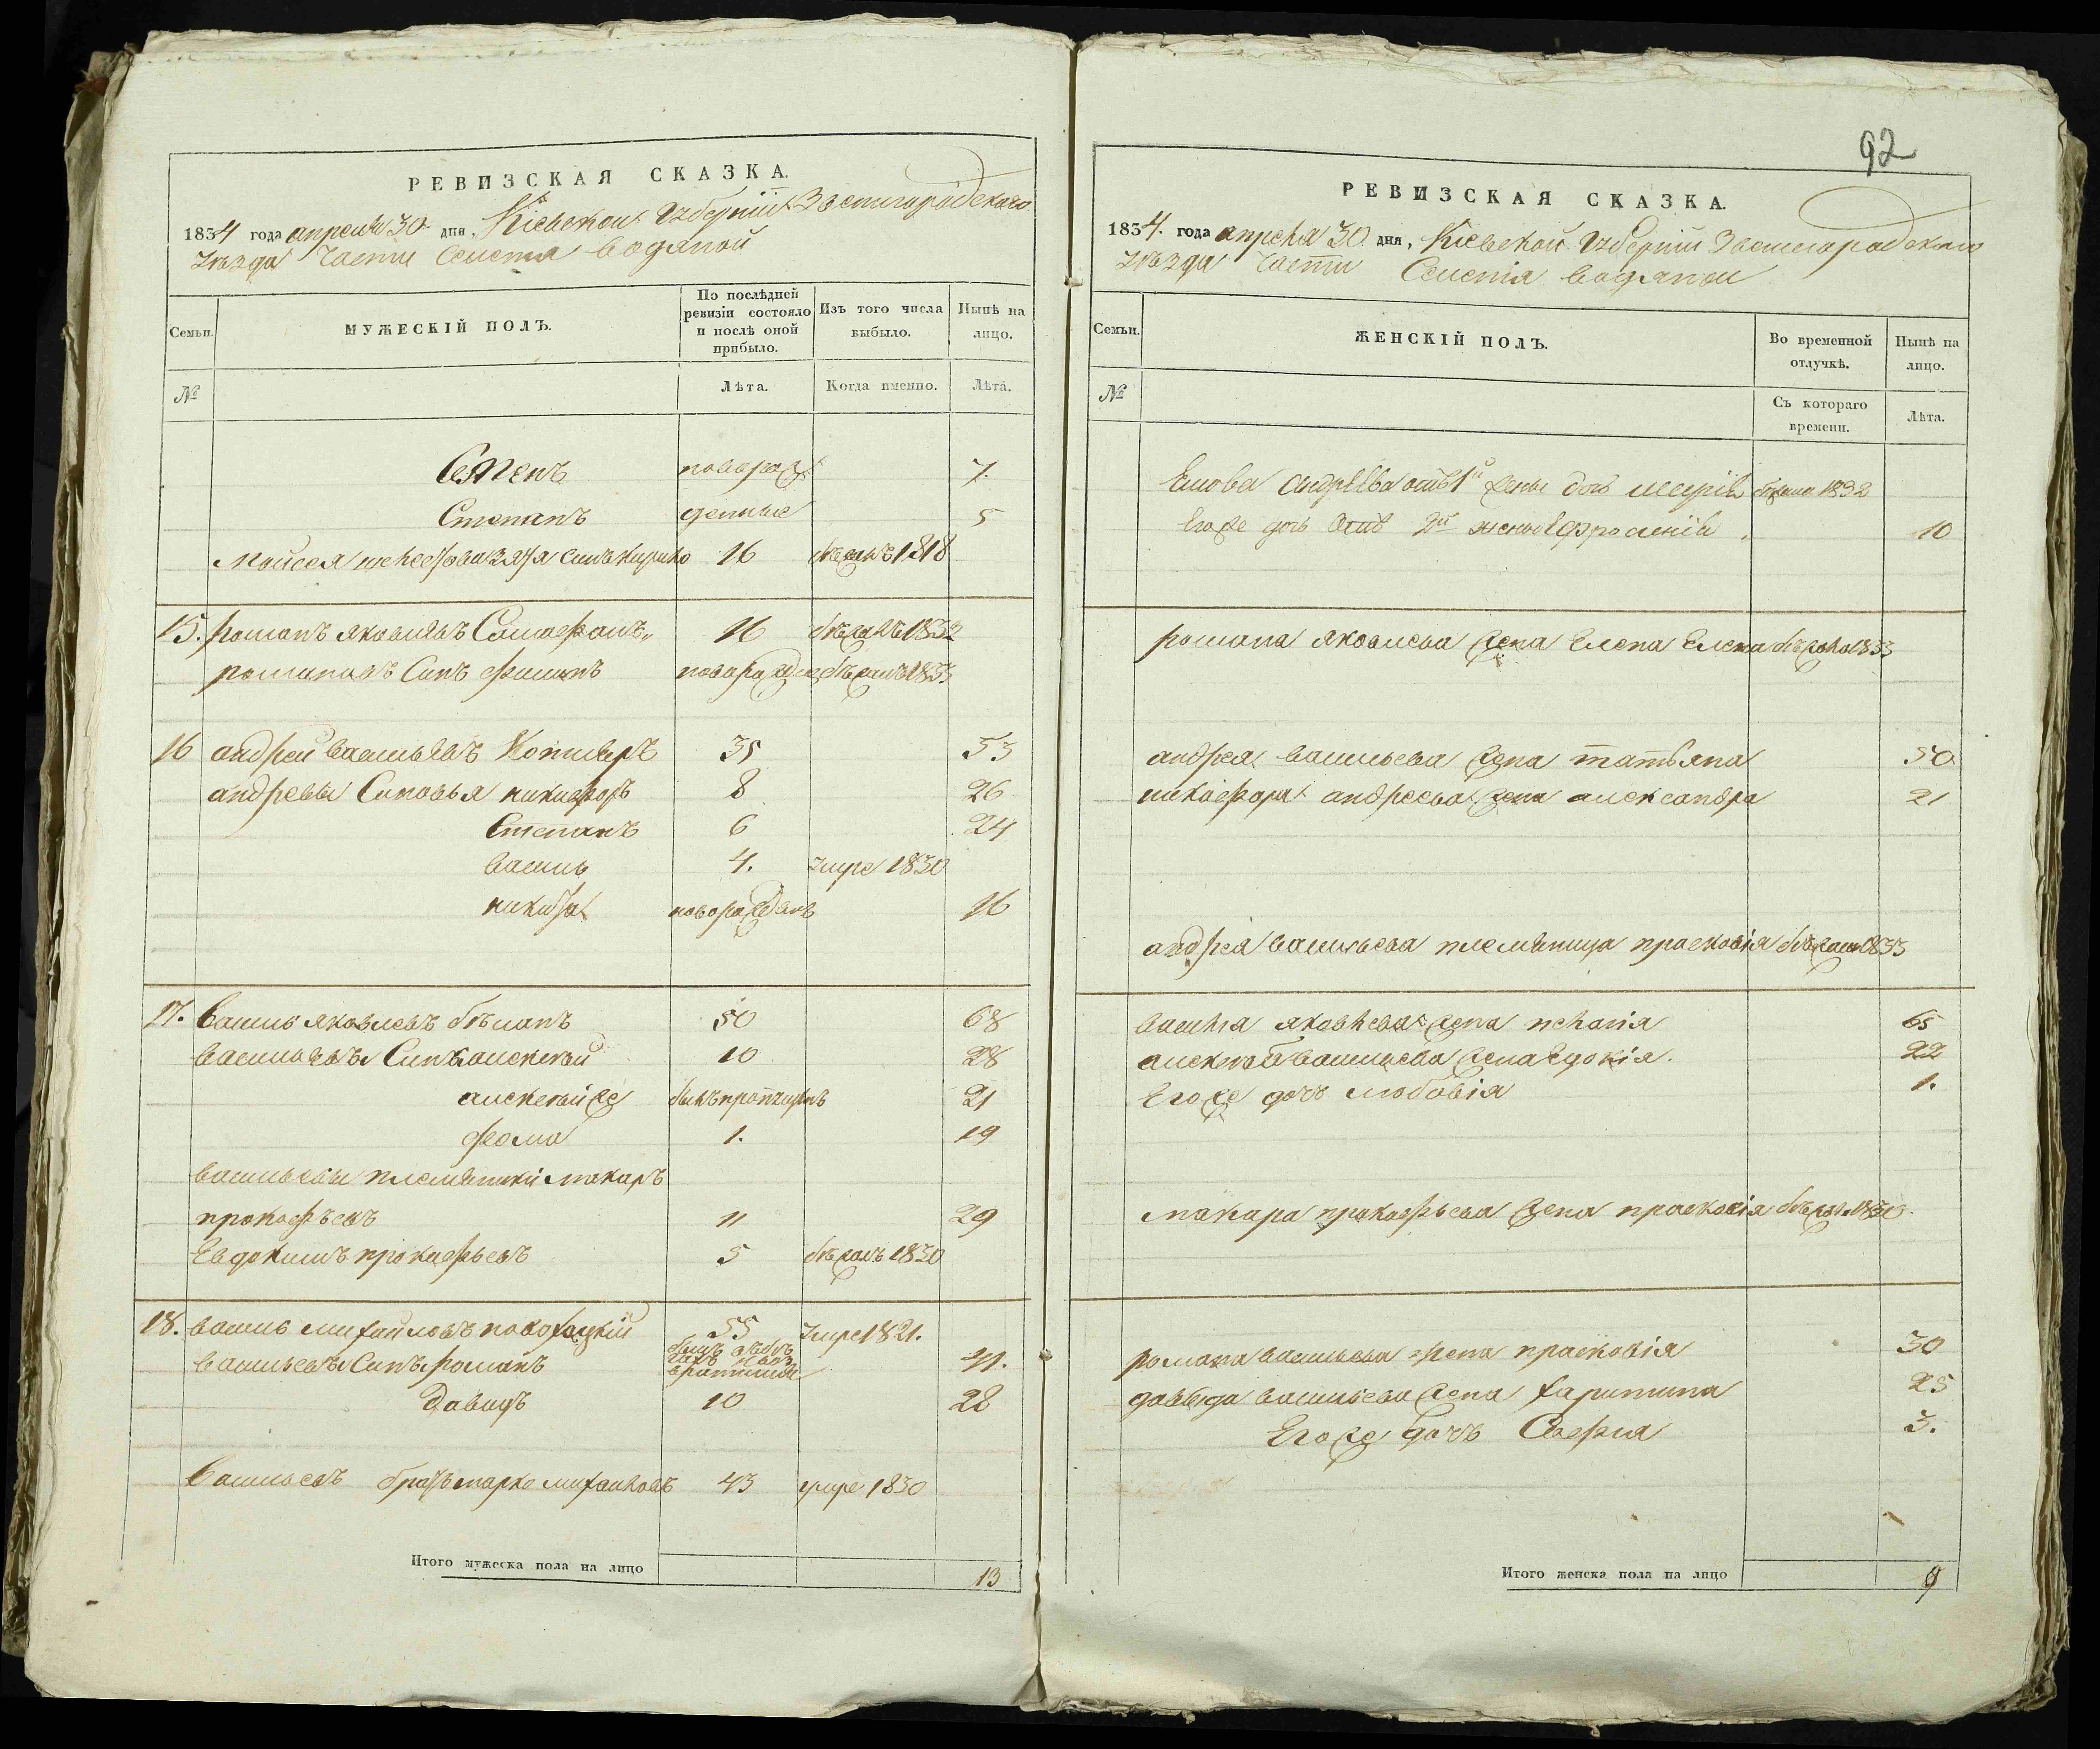 РЕВИЗСКАЯ СКАЗКА.
1834 года апреля 30 дня, Кіевской Губерніи Звенигородскаго
уезда части Селенія водяной
Семьи.
МУЖЕСКІЙ ПОЛЪ.
По послѣдней ревизіи состояло и послѣ оной прибыло.
Изъ того числа выбыло.
Нынѣ на лицо.
№
Лѣта.
Когда именно.
Лѣта.
Семенъ 7.
Степанъ 5
Мойсея зятя сынъ 16 бѣжалъ 1818
15. романъ яковлевъ 16 бѣжалъ 1832
романовъ Сынъ бѣжалъ 1833
16 андрей васильевъ 35 53
андреевы Сыновья никифоръ 8 26
Степанъ 6 24
василь 4. умре 1830
никита новорожденъ 16
17. василь яковлевъ бѣланъ 50 68
васильевъ Сынъ алексѣй 10 28
алексѣй же былъ 21
фома 1. 19
васильевы племянники макаръ
прокофьевъ 11 29
Евдокимъ прокофьевъ 5 бѣжалъ 1830
18. василь михайловъ 55 умре 1821.
васильевъ Сынъ романъ 41.
Давидъ 10 28
васильевъ братъ марко михайловъ 43 умре 1830
Итого мужеска пола на лицо 13
92
РЕВИЗСКАЯ СКАЗКА.
1834. года апреля 30 дня, Кіевской Губерніи Звенигородскаго
уезда части Селенія водяной
Семьи.
ЖЕНСКІЙ ПОЛЪ.
Во временной отлучкѣ.
Нынѣ на лицо.
№
Съ котораго времени.
Лѣта.
андреева отъ 1й жены дочь 1832
Егоже дочь отъ 2й жены 10
романа яковлева жена Елена 1833
андрея васильева жена татьяна 50
никифора андреева жена александра 21
андрея васильева племяница прасковія 1833
василя яковлева жена пелагія 65
алексѣя васильева жена Евдокія. 22
Егоже дочь любовія 1.
макара прокофьева жена прасковія 1830.
романа васильева жена прасковія 30
давыда васильева жена харитина 25
Егоже дочъ София 3.
Итого женска пола на лицо 9